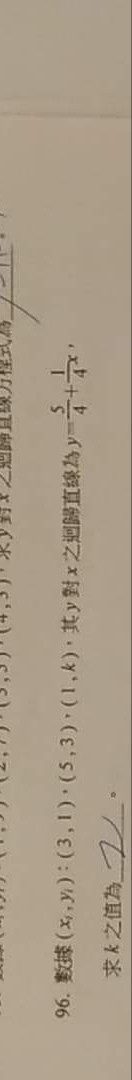 (2,7),(3,5),(4,3),求y對x之迴歸直線方程式為
96. 數據(xᵢ,yᵢ):(3,1),(5,3),(1,k),其y對x之迴歸直線為y=5/4+1/4x,
求k之值為 2 。